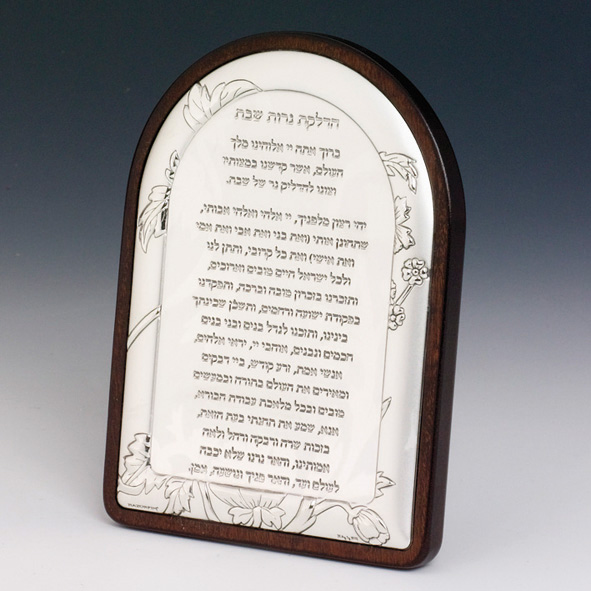 הדלקת נרות שבת
ברוך אתה יי אלוהינו מלך
העולם, אשר קדשנו במצותיו
וצונו להדליק נר של שבת.
יהי רצון מלפניך, יי אלהי ואלהי אבותי,
שתחונן אותי (ואת בני ואת אבי ואת אמי
ואת אישי) ואת כל קרובי, ותתן לנו
ולכל ישראל חיים טובים וארוכים,
ותזכרנו בזכרון טובה וברכה, ותפקדנו
בפקודת ישועה ורחמים, ותשכן שכינתך
בינינו, ותזכנו לגדל בנים ובני בנים
חכמים ונבונים, אוהבי יי, יראי אלהים,
אנשי אמת, זרע קודש, ביי דבקים
ומאירים את העולם בתורה ובמעשים
טובים ובכל מלאכת עבודת הבורא,
אנא, שמע את תחנתי בעת הזאת,
בזכות שרה ורבקה ורחל ולאה
אמותינו, והאר נרנו שלא יכבה
לעולם ועד, והאר פניך ונושעה, אמן.